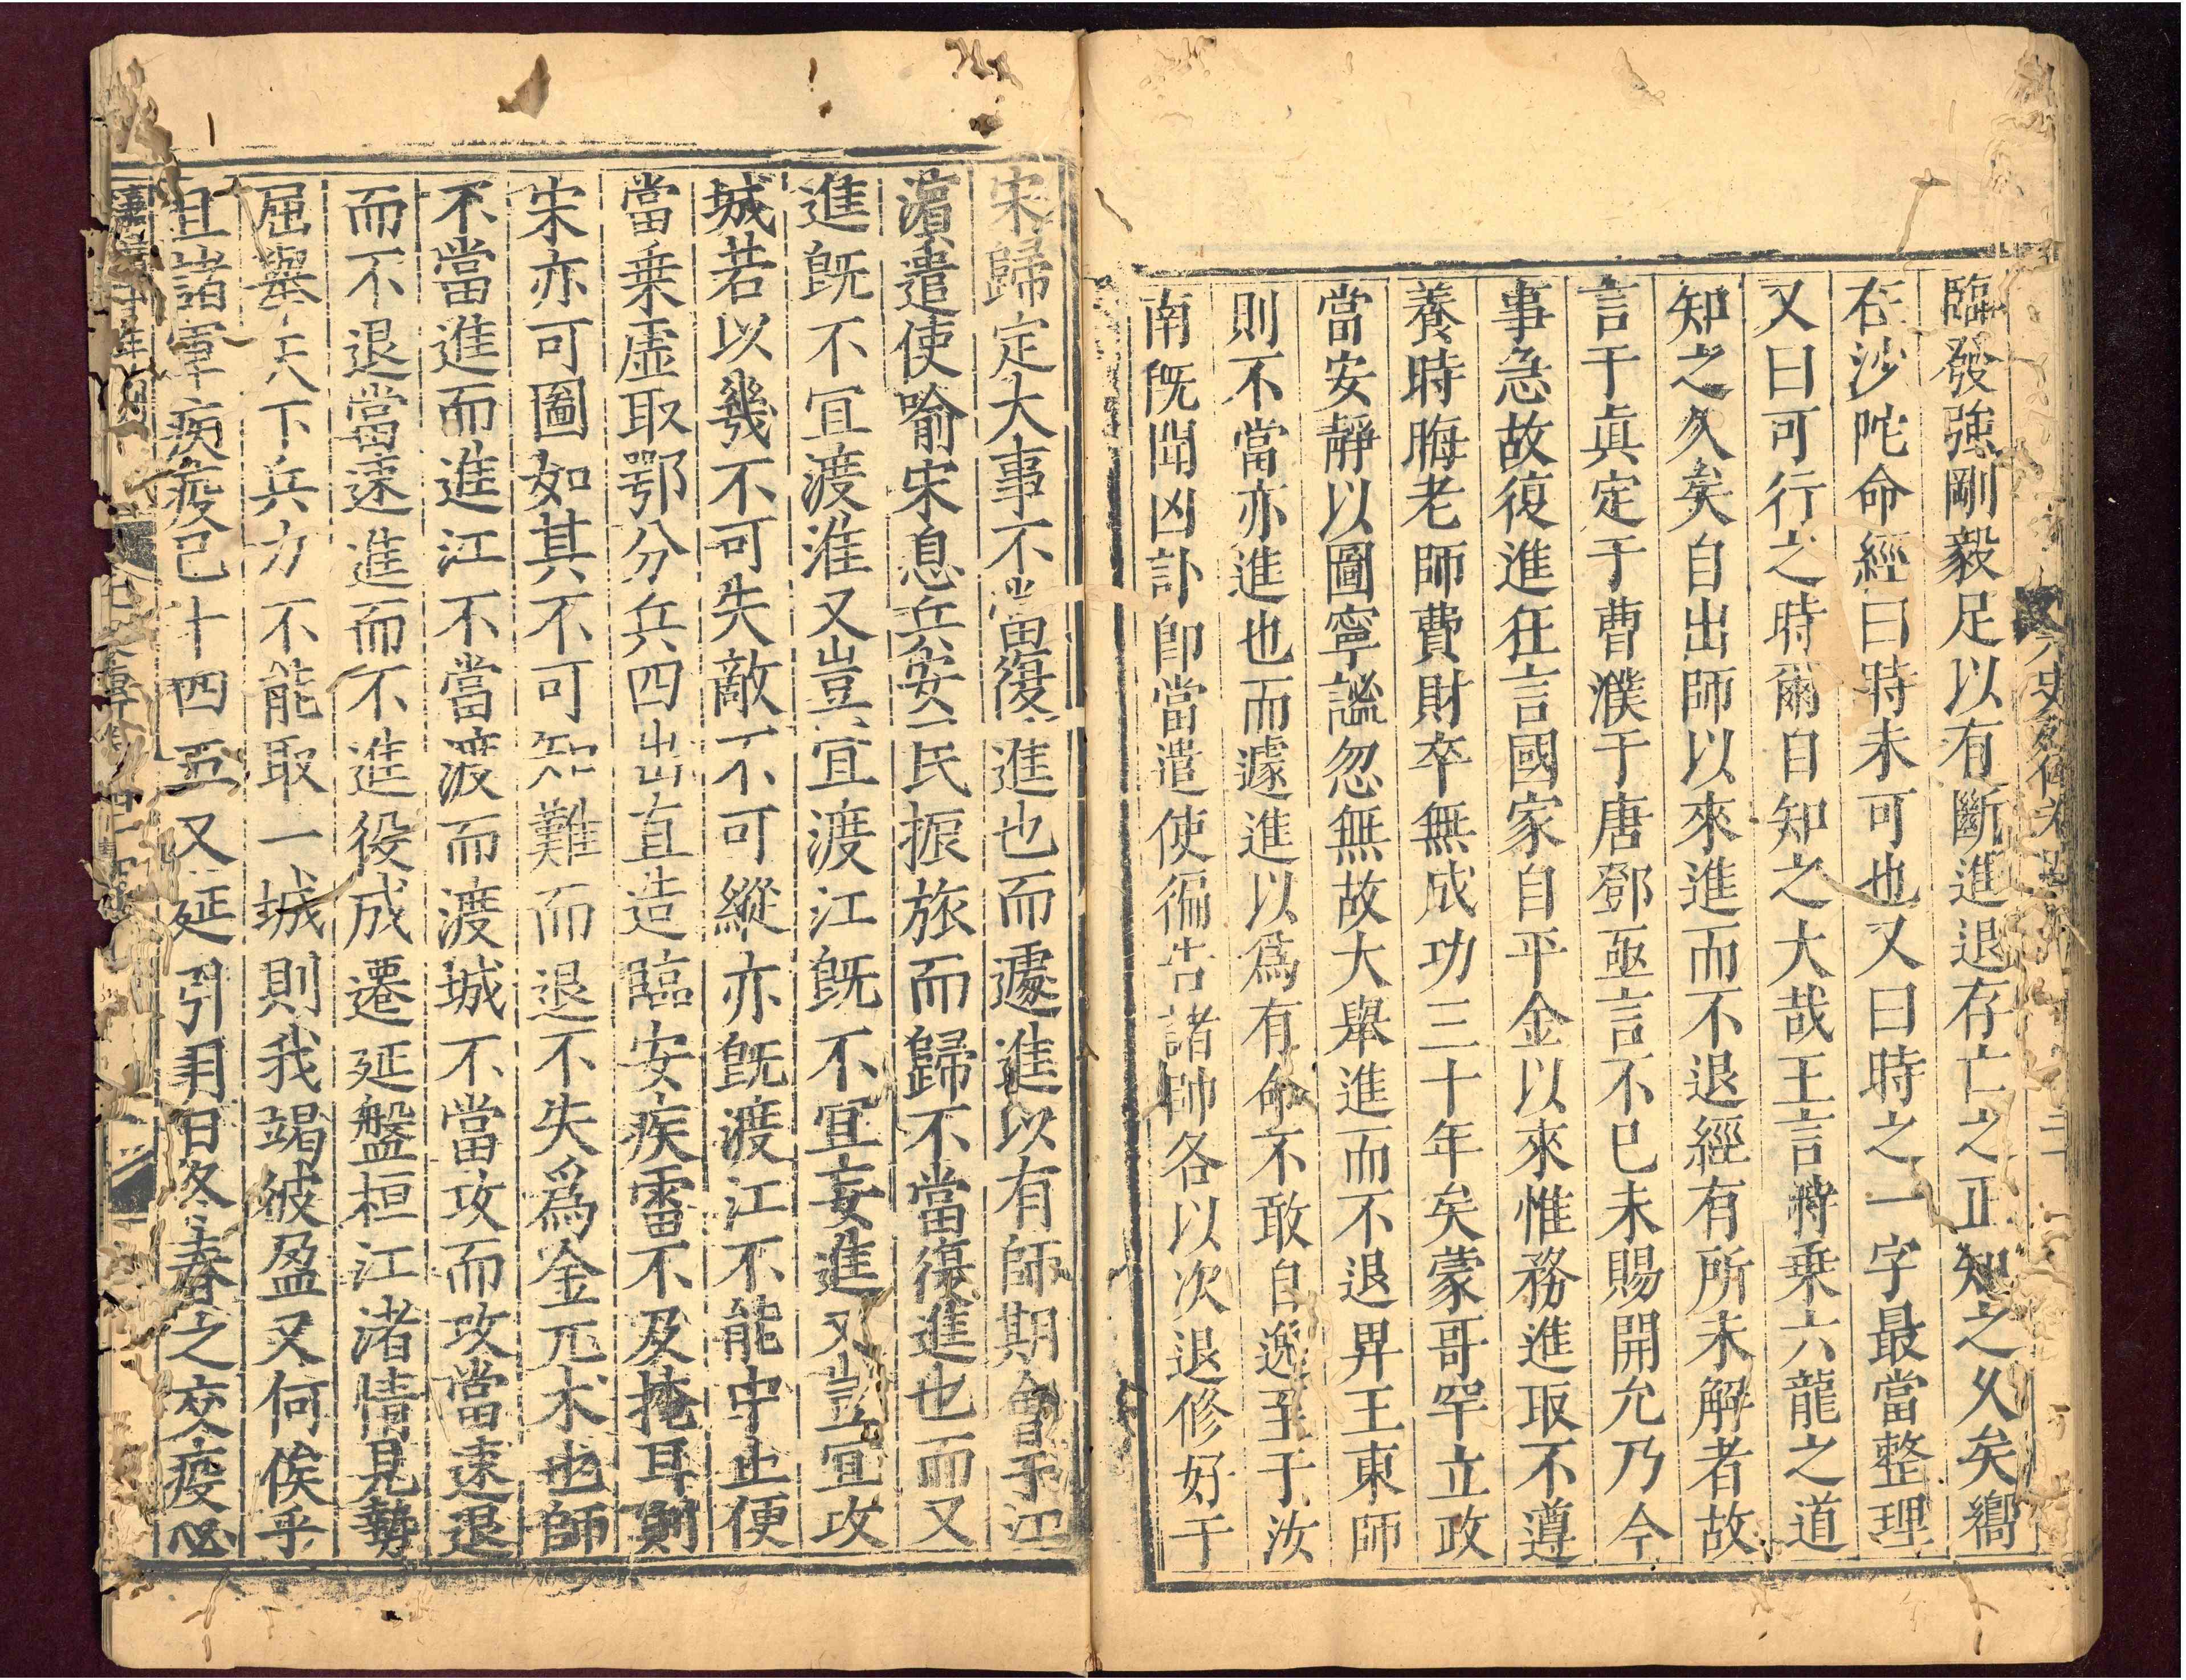 臨發強剛毅足以有斷進退存亡之正知之乆矣嚮
在沙陀命經曰時未可也又曰時之一字最當整理
又曰可行之時爾自知之大哉王言時乗六龍之道
知之久矣自出師以來進而不退經有所未解者故
言于眞定于曹濮于唐鄧亟言不已未賜開允乃今
事急故復進狂言國家自平金以來惟務進取不遵
養時晦老師費財卒無成功三十年矣蒙哥罕立政
當安靜以圖寧謐忽無故大舉進而不退畀王東師
則不當亦進也而遽進以爲有命不敢自逸至于汝
南旣聞凶訃卽當遣使徧告諸帥各以次退修好于
宋歸定大事不當復進也而遽進以有師期會于江
濵遣使喻宋息兵安民振旅而歸不當復進也而又
進旣不宜渡淮又豈宜渡江旣不宜妄進又豈宜攻
城若以幾不可失敵不可縱亦旣渡江不能中止便
當乗虛取鄂分兵四出直造臨安疾雷不及掩耳則
宋亦可圖如其不可知難而退不失爲金兀术也師
不當進而進江不當渡而渡城不當攻而攻當速退
而不退當速進而不進役成遷延盤桓江渚情見勢
屈舉天下兵力不能取一城則我竭彼盈又何俟乎
且諸軍疾疫已十四五又延引月日冬春之交疫必